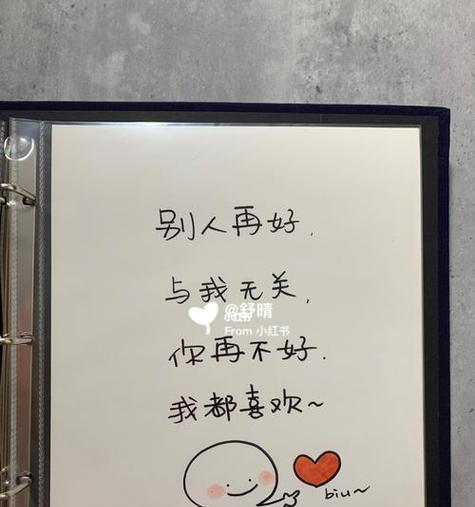 别人再好，
与我无关，
@舒晴
From 小红书
你再不好.
我都喜欢~
biu~